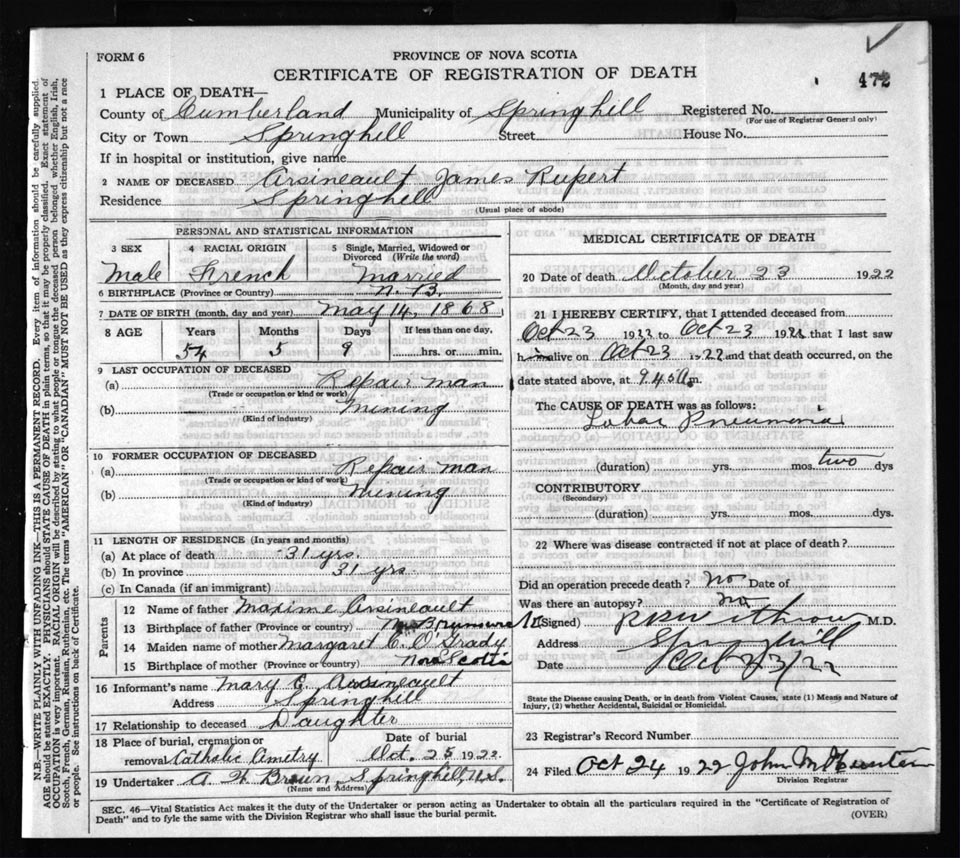 FORM 6
PROVINCE OF NOVA SCOTIA
CERTIFICATE OF REGISTRATION OF DEATH
472
1 PLACE OF DEATH—
County of Cumberland Municipality of Springhill Registered No.
(For use of Registrar General only)
City or Town Springhill Street House No.
If in hospital or institution, give name
2 NAME OF DECEASED Arsineault James Rupert
Residence Springhill
(Usual place of abode)
PERSONAL AND STATISTICAL INFORMATION
3 SEX 4 RACIAL ORIGIN 5 Single, Married, Widowed or Divorced (Write the word)
Male French Married
6 BIRTHPLACE (Province or Country) N.B.
7 DATE OF BIRTH (month, day and year) May 14, 1868
8 AGE Years Months Days If less than one day,
54 5 9 hrs. or min.
9 LAST OCCUPATION OF DECEASED
(a) Repair man
(Trade or occupation or kind of work)
(b) Mining
(Kind of industry)
10 FORMER OCCUPATION OF DECEASED
(a) Repair man
(Trade or occupation or kind of work)
(b) Mining
(Kind of industry)
11 LENGTH OF RESIDENCE (In years and months)
(a) At place of death 31 yrs.
(b) In province 31 yrs
(c) In Canada (if an immigrant)
Parents
12 Name of father Maxime Arsineault
13 Birthplace of father (Province or country) New Brunswick
14 Maiden name of mother Margaret C. O'Grady
15 Birthplace of mother (Province or country) Nova Scotia
16 Informant's name Mary E. Arsineault
Address Springhill
17 Relationship to deceased Daughter
18 Place of burial, cremation or removal Catholic Cemetry Date of burial Oct. 25 1922
19 Undertaker A. H. Brown, Springhill, N.S.
(Name and Address)
MEDICAL CERTIFICATE OF DEATH
20 Date of death October 23 1922
(Month, day and year)
21 I HEREBY CERTIFY, that I attended deceased from
Oct 23 1922 to Oct 23 1922 that I last saw
him alive on Oct 23 1922 and that death occurred, on the
date stated above, at 9.45 a.m.
The CAUSE OF DEATH was as follows:
Lobar Pneumonia
(duration) yrs. mos. two dys
CONTRIBUTORY
(Secondary)
(duration) yrs. mos. dys.
22 Where was disease contracted if not at place of death?
Did an operation precede death? no Date of
Was there an autopsy? no
(Signed) Withrow M.D.
Address Springhill
Date Oct 23/22
State the Disease causing Death, or in death from Violent Causes, state (1) Means and Nature of
Injury, (2) whether Accidental, Suicidal or Homicidal.
23 Registrar's Record Number
24 Filed Oct 24 1922 John M Hunter
Division Registrar
SEC. 46—Vital Statistics Act makes it the duty of the Undertaker or person acting as Undertaker to obtain all the particulars required in the "Certificate of Registration of
Death" and to fyle the same with the Division Registrar who shall issue the burial permit.
(OVER)
N.B.—WRITE PLAINLY WITH UNFADING INK—THIS IS A PERMANENT RECORD. Every item of information should be carefully supplied.
AGE should be stated EXACTLY. PHYSICIANS should STATE CAUSE OF DEATH in plain terms, so that it may be properly classified. Exact statement of
OCCUPATION is very important. RACIAL ORIGIN will be described by stating to what people or tongue the deceased person belonged, whether English, Irish,
Scotch, French, German, Russian, Ruthenian, etc. The terms "AMERICAN" OR "CANADIAN" MUST NOT BE USED as they express citizenship but not a race
or people. See instructions on back of Certificate.